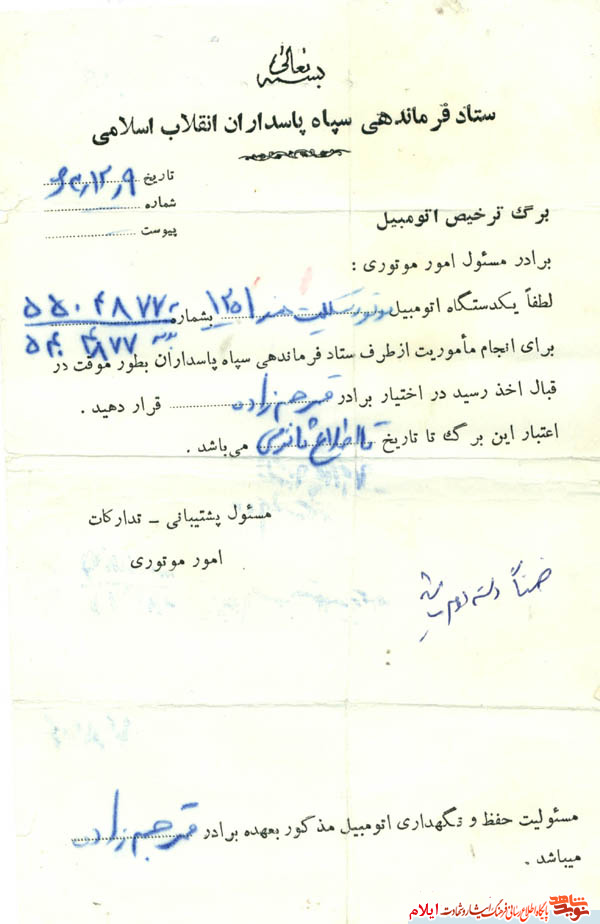 بسمه تعالی
ستاد فرماندهی سپاه پاسداران انقلاب اسلامی
تاریخ ۶۳٫۱۲٫۹
شماره
پیوست
برگ ترخیص اتومبیل
برادر مسئول امور موتوری :
لطفاً یکدستگاه اتومبیل موتورسیکلت هندا ۱۲۵ بشماره ۵۵۰۴۸۷۷
برای انجام مأموریت از طرف ستاد فرماندهی سپاه پاسداران بطور موقت در
قبال اخذ رسید در اختیار برادر قرار دهید .
اعتبار این برگ تا تاریخ تا اطلاع ثانوی می باشد .
مسئول پشتیبانی – تدارکات
امور موتوری
ضمناً دسته دوم
مسئولیت حفظ و نگهداری اتومبیل مذکور بعهده برادر
میباشد .
نوید شاهد
پایگاه اطلاع رسانی فرهنگ ایثار و شهادت ایلام